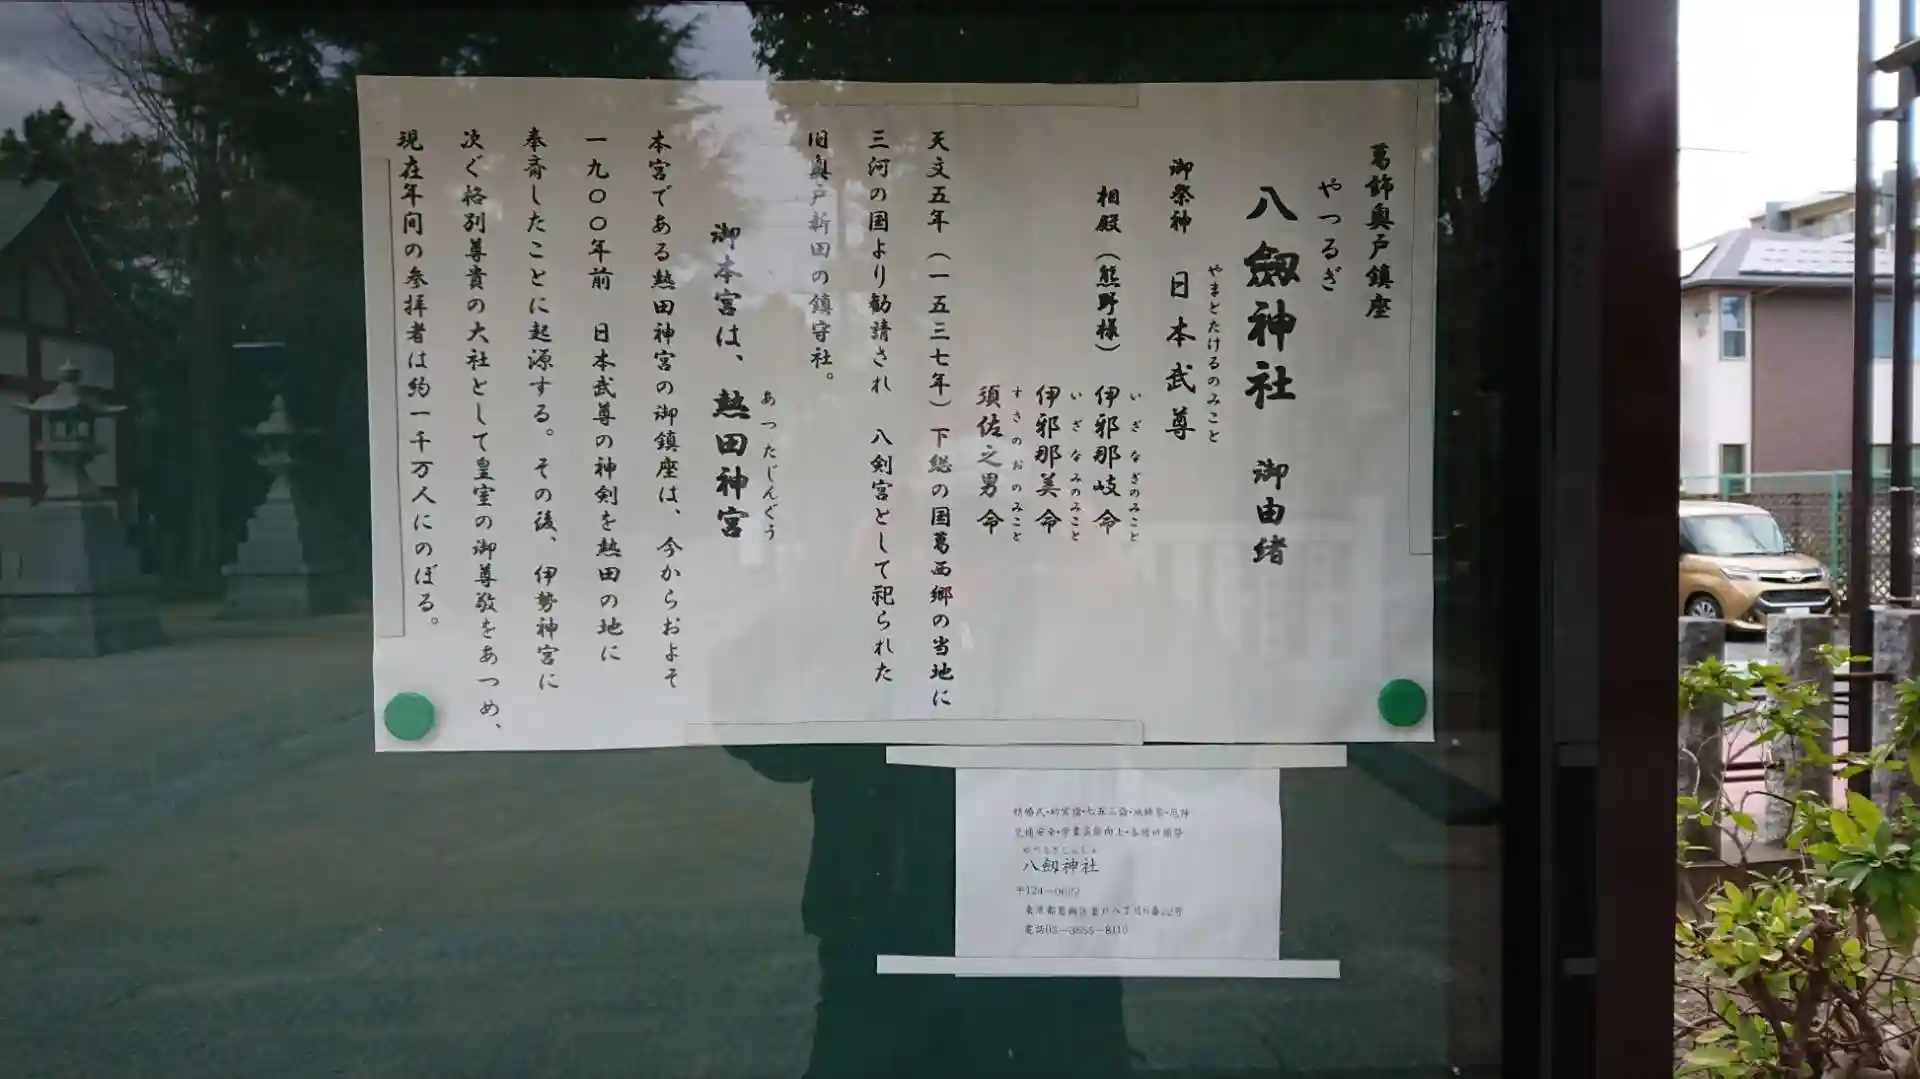 葛飾奥戸鎮座
やつるぎ
八劔神社 御由緒
やまとたけるのみこと
御祭神 日本武尊
いざなぎのみこと
相殿(熊野様) 伊邪那岐命
いざなみのみこと
伊邪那美命
すさのおのみこと
須佐之男命
天文五年(一五三七年)下総の国葛西郷の当地に
三河の国より勧請され 八剣宮として祀られた
旧奥戸新田の鎮守社。
あつたじんぐう
御本宮は、熱田神宮
本宮である熱田神宮の御鎮座は、今からおよそ
一九〇〇年前 日本武尊の神剣を熱田の地に
奉斎したことに起源する。その後、伊勢神宮に
次ぐ格別尊貴の大社として皇室の御尊敬をあつめ、
現在年間の参拝者は約一千万人にのぼる。
結婚式・初宮詣・七五三詣・地鎮祭・厄除
交通安全・学業芸能向上・各種祈願祭
やつるぎじんじゃ
八劔神社
〒124-0022
東京都葛飾区奥戸八丁目
電話03-3655-8110